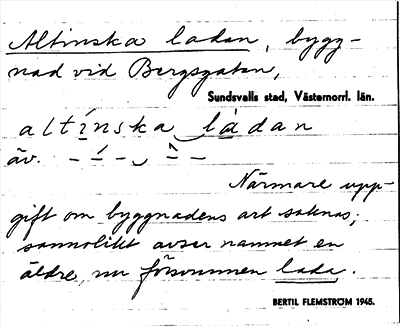 Altinska ladan, bygg-
nad vid Bergsgatan,
Sundsvalls stad, Västernorrl. län.
altínska làdan
äv. – –́ – ⏑ –̀ –
Närmare upp-
gift om byggnadens art saknas;
sannolikt avser namnet en
äldre, nu försvunnen lada.
BERTIL FLEMSTRÖM 1945.